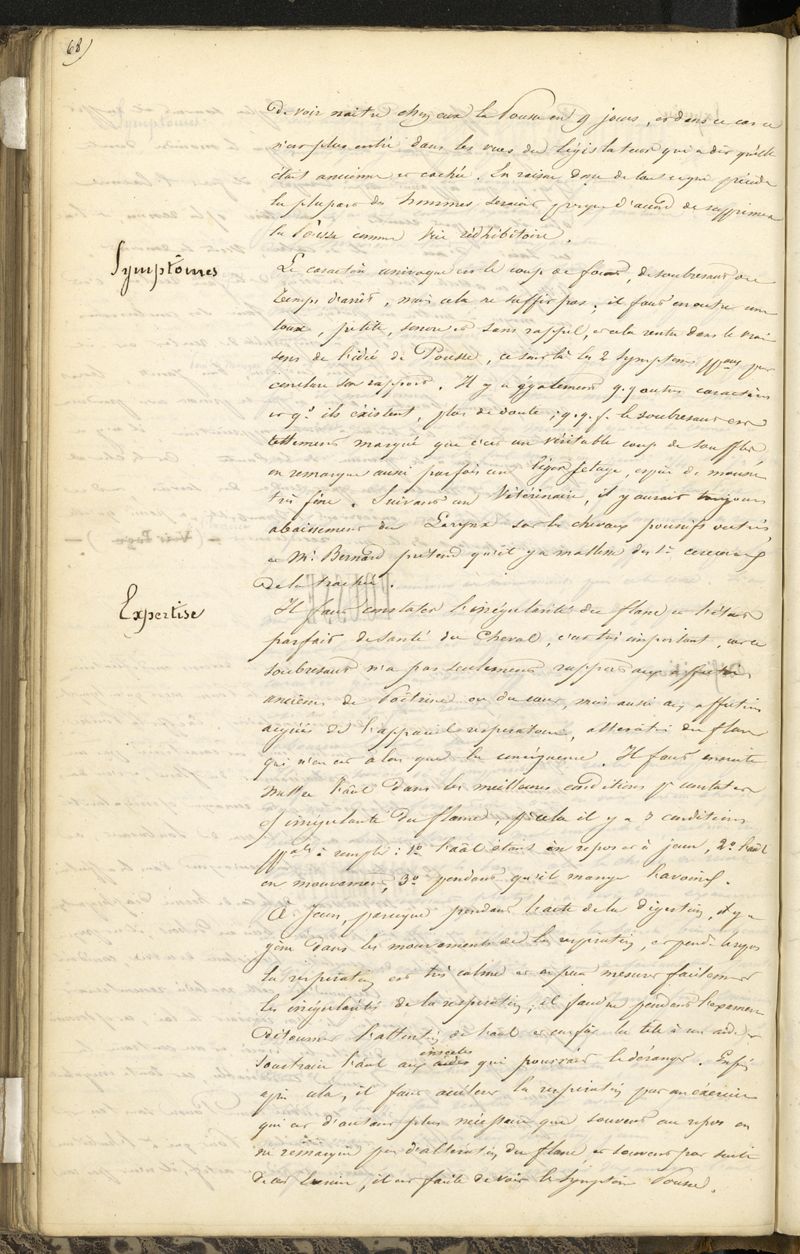 68)
de voir naitre chez eux la Pousse en 9 jours, et dans ce cas ce
n'est plus entré dans les vues du législateur qui a dit qu'elle
était ancienne et cachée. En raison donc de tout ce qui précède
la plupart des hommes seraient presque d'accord de supprimer
la Pousse comme vice rédhibitoire.
Symptômes
Le caractère univoque est le coup de fouet, de soubresaut ou le
temps d'arrêt, mais cela ne suffit pas, il faut en outre une
toux, petite, sonore et sans rappel, et cela rentre dans le vrai
sens de l'idée de Pousse, ce sont là les 2 symptômes ppaux pour
conclure son rapport. Il y a également q.q autres caractères
et qd ils existent, plus de doute ; q.q.f. le soubresaut est
tellement marqué que c'est un véritable coup de soufflet,
on remarque aussi parfois un léger jetage, espèce de mousse
très fine. Suivant un Vétérinaire, il y aurait toujours
abaissement du Larynx sur les chevaux poussifs outrés,
et Mr. Bernard prétend qu'il y a des 1ers cerceaux
de la trachée.
Expertise
Il faut constater l'irrégularité du flanc et l'état
parfait de santé du Cheval, c'est très important, car ce
soubresaut n'a pas seulement rapport aux affections
anciennes de Poitrine ou du cœur, mais aussi aux affections
aiguës de l'appareil respiratoire, altération du flanc
qui n'en est alors que la conséquence. Il faut ensuite
mettre l'aal dans les meilleures conditions pr constater
l'irrégularité du flanc, pr cela il y a 3 conditions
ppales à remplir : 1o l'aal étant en repos et à jeun, 2o l'aal
en mouvement, 3o pendant qu'il mange l'avoine.
À Jeun, parceque pendant l'acte de la digestion, il y a
gêne dans les mouvements de la respiration, et pendt le repos
la respiration est très calme et on peut mesurer facilement
les irrégularités de la respiration, il faudra pendant l'examen
détourner l'attention de l'aal et confier la tête à un aide, et
soustraire l'aal aux insectes qui pourraient le déranger. Enfin
après cela, il faut accélérer la respiration par un exercice
qui est d'autant plus nécessaire que souvent au repos on
ne remarque pas d'altération du flanc, et souvent par suite
de cet exercice, il est facile de voir le symptôme Pousse.